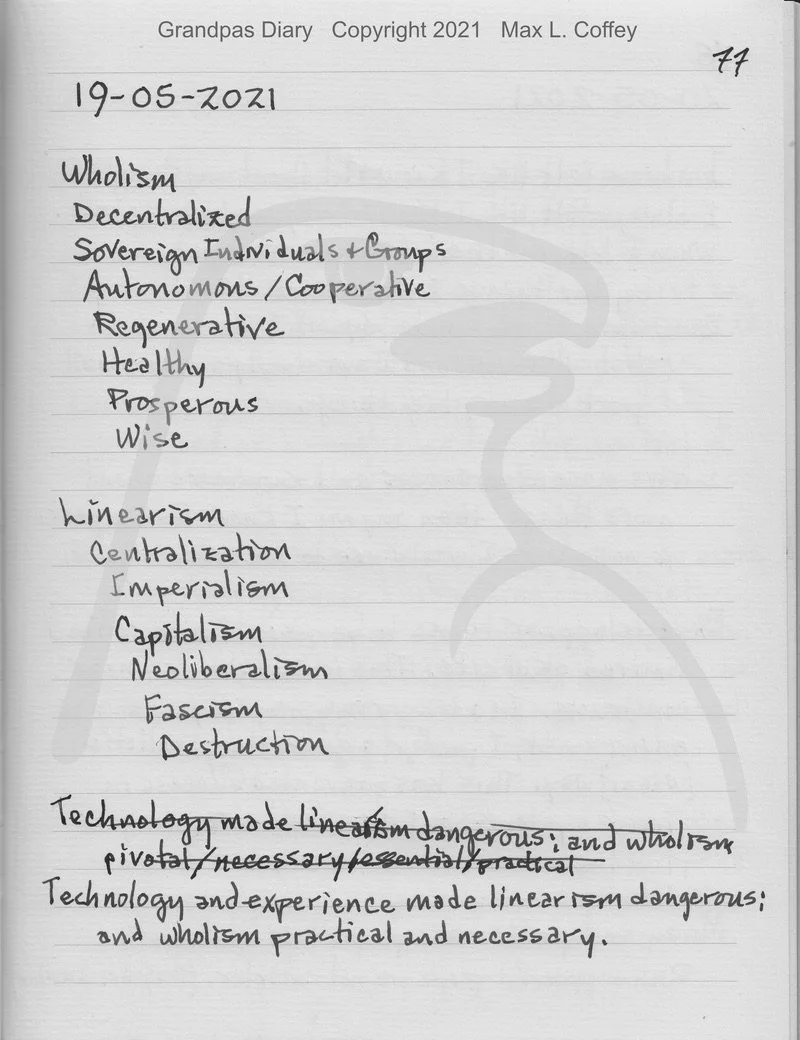 Grandpas Diary Copyright 2021 Max L. Coffey
77
19-05-2021
Wholism
Decentralized
Sovereign Individuals + Groups
Autonomous / Cooperative
Regenerative
Healthy
Prosperous
Wise
Linearism
Centralization
Imperialism
Capitalism
Neoliberalism
Fascism
Destruction
Technology made linearism dangerous; and wholism
pivotal/necessary/essential/practical
Technology and experience made linearism dangerous;
and wholism practical and necessary.